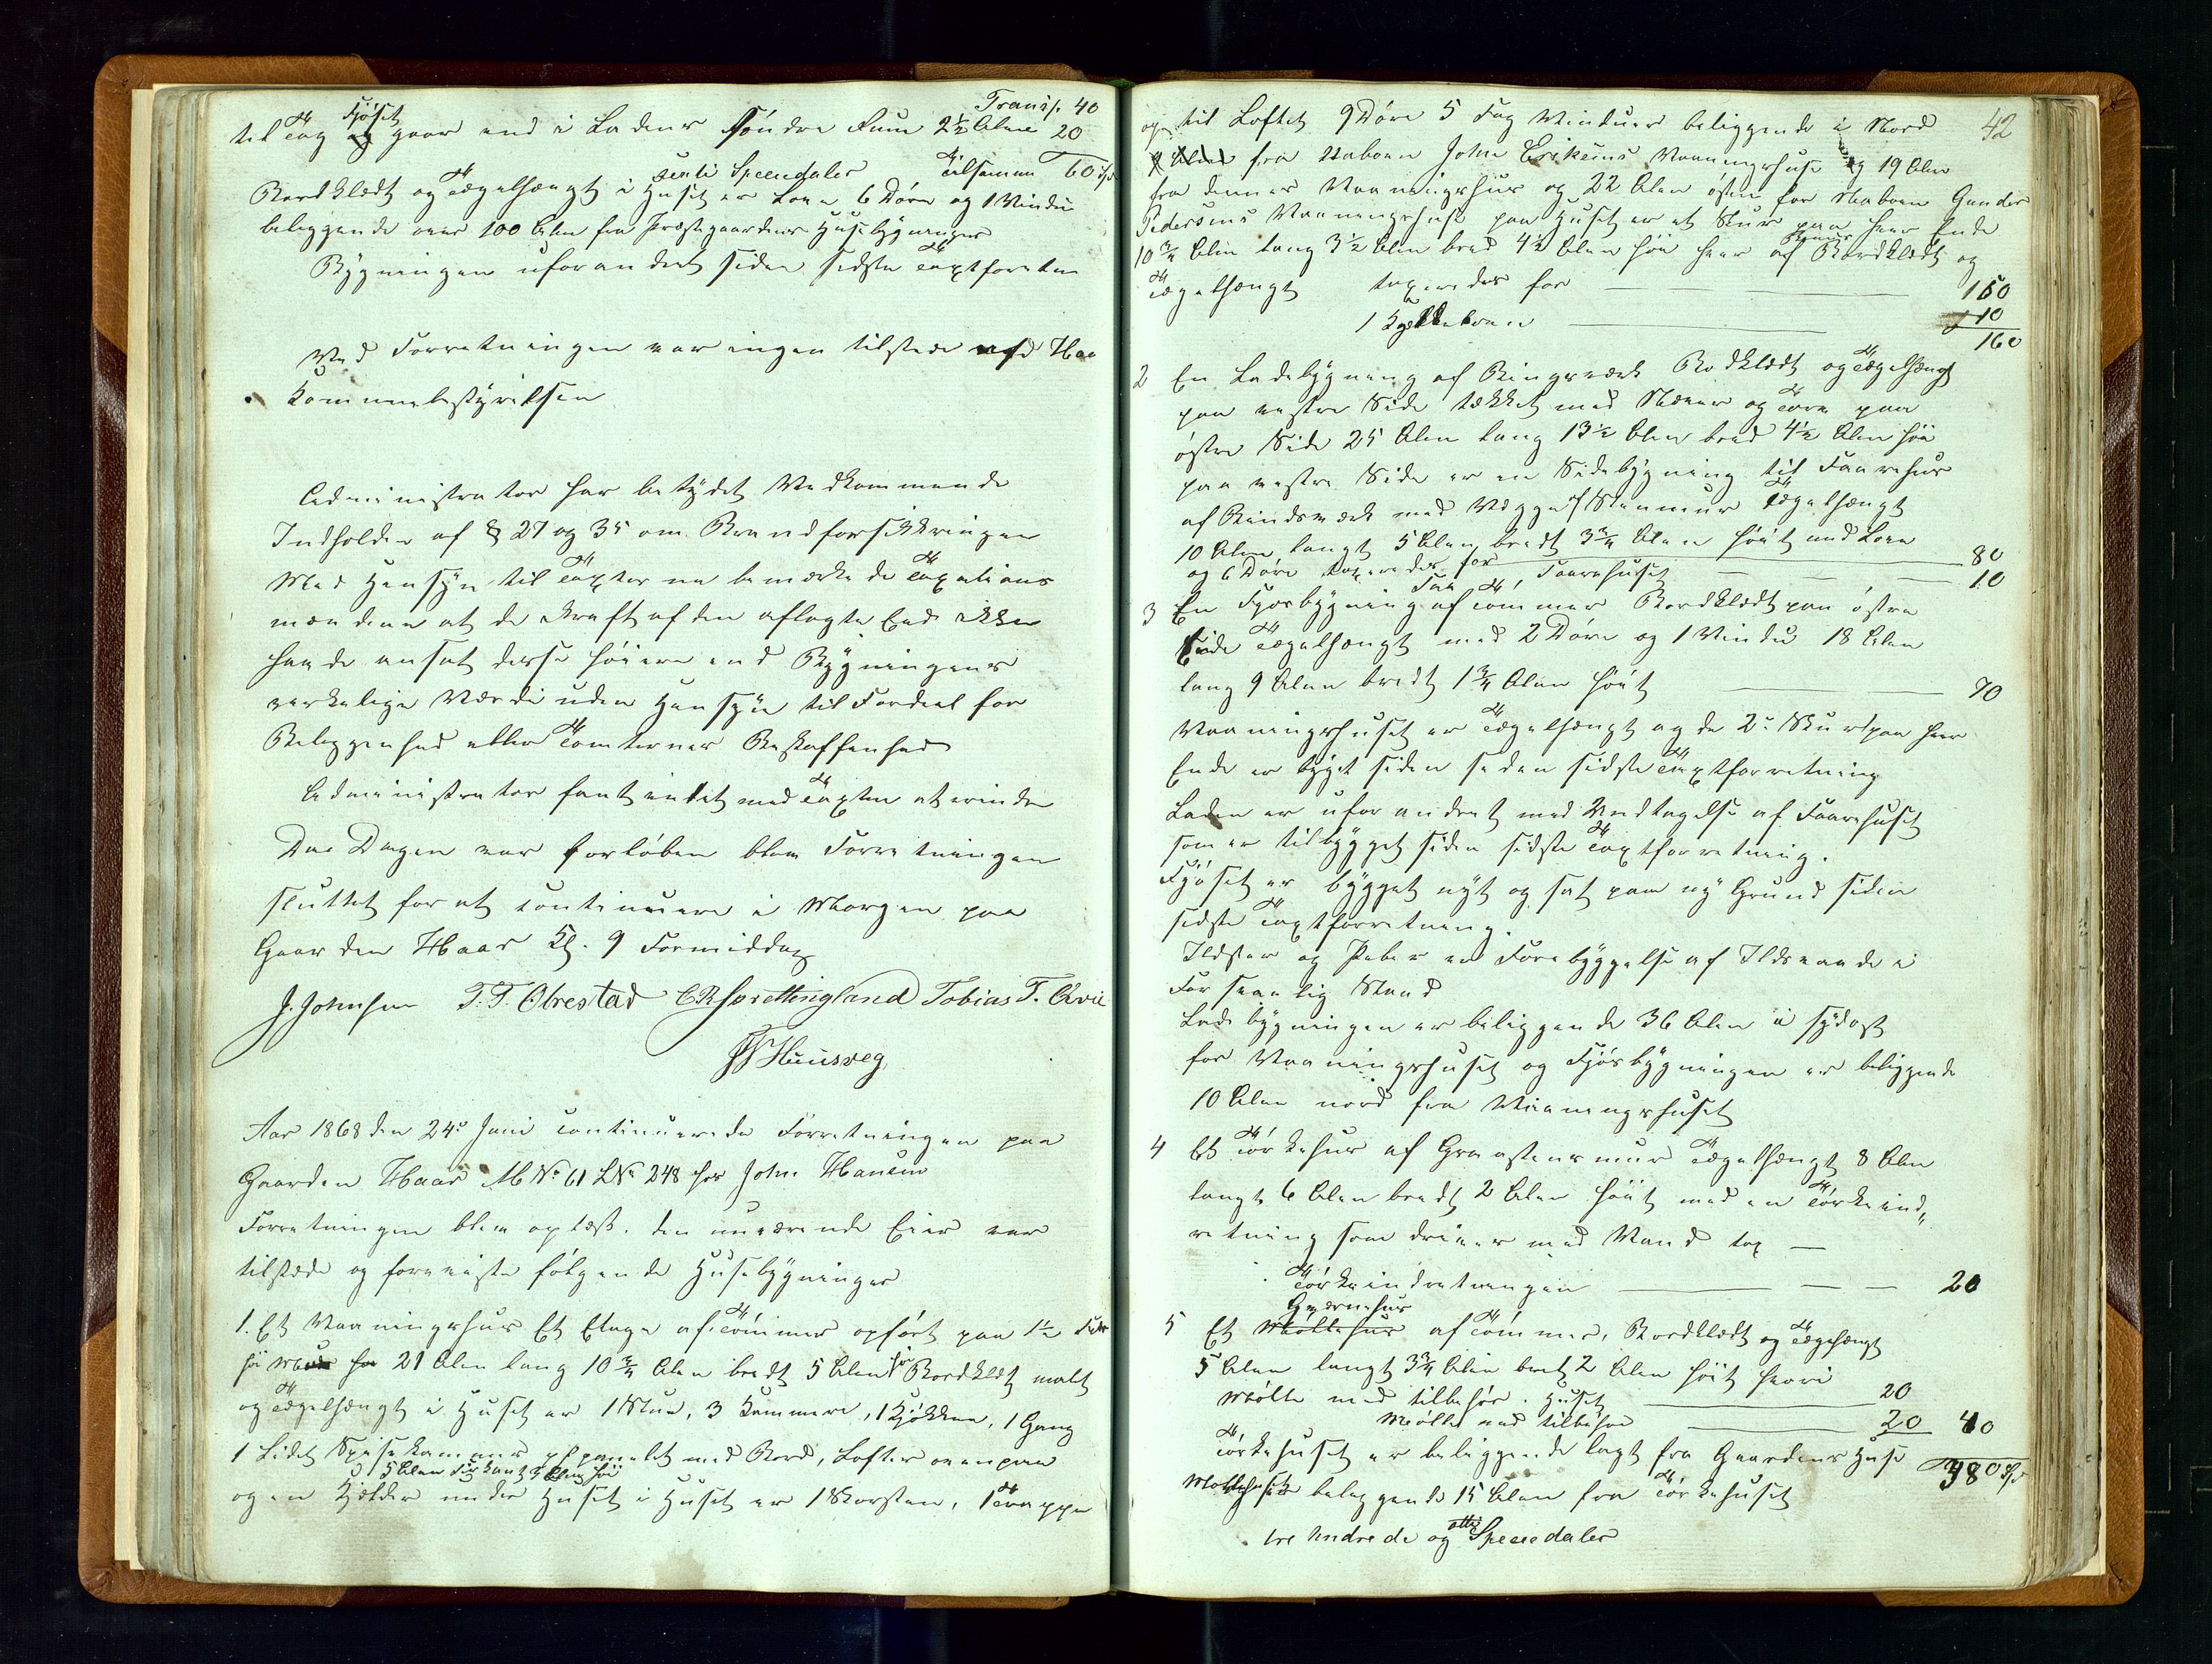 Transp. 40
Fjöset
til Tag og gaar ind i Ladens Söndre Rum 2½ Alen 20
Tilsamen 60 Spd
sexti Speciedaler
Bordklædt og Tægelhængt i Huset er Loen 6 Döre og 1 Vindu
beliggende over 100 Alen fra Præstegaardens Husebÿgninger
Bÿgningen uforandret siden sidste Taxtforetn
Ved Forretningen var ingen tilstede ved Haa
Kommunebestÿrelsen
Administrator har betÿdet Vedkommende
Indholden af § 27 og 35 om Brandforsikkringen
Med Hensÿn til Taxterne bemærkede Taxations
mændene at de i kraft af den aflagte Eed ikke
havde ansat disse höiere end Bÿgningens
verkelige Værdi uden Hensÿn til Fordeel for
Beliggenhed eller Tomternes Beskaffenhed
Administrator fant intet med Taxten at erindre
Da Dagen var forlöben blev Forretningen
sluttet for at continuere i Morgen paa
Gaarden Haar Kl. 9 Formiddag
J. Johnsen T. T. Obrestad C R Sorettingland Tobias T. Qvie
Huusveg
Aar 1868 den 24de Juni continuerede Forretningen paa
Gaarden Haar M No 61 L No 248 hos John Hansen
Forretningen blev oplæst. den nuværende Eier var
tilstæde og foreviste fölgende Husebÿgninger
1. Et Vaaningshus Et Etage af Tömmer opfört paa 1½ Alen
höi Muur 21 Alen lang 10¾ Alen bredt 5 Alen höi Bordklædt malt
og Tægelhængt i Huset er 1 Stue, 3 Kammere, 1 Kjökken, 1 Gang
1 Lidet Spisekammer panelet med Bord, Lofter ovenpaa
5 Alen Fiirkant 3 Alen höi
og en Kjelder under Huset i Huset er 1 Skorsten, 1 Trappe
42
op til Loftet 9 Döre 5 Fag Vinduer beliggende i Nord
fra Naboen John Eriksens Vaaningshuse og 19 Alen
fra dennes Vaaningshus og 22 Alen östen for Naboen Gunder
Pedersens Vaaningshuse paa Huset er et Skur paa hver Ende
10¾ Alen lang 3½ Alen bred 4½ Alen höi hver af Bordklædt og
Tægelhængt taxeredes for 150
1 Kjelleboen 10
160
2 En Ladebÿgning af Bingverk Bordklædt og Tægelhængt
paa vestre Side tækket med Næver og Torv paa
östre Side 25 Alen lang 13½ Alen bred 4½ Alen höi
paa vestre Side er en Sidebÿgning til Faarehus
af Bindverk med Vægge af Steenmur Tægelhængt
10 Alen langt 5 Alen bredt 3¾ Alen höit med Loen
og 6 Döre taxeredes for 80
Faarehuset 10
3 En Fjösbÿgning af Tömmer Bordklædt paa östre
Side Tægelhængt med 2 Döre og 1 Vindu 18 Alen
lang 9 Alen bredt 1¾ Alen höit 70
Vaaningshuset er Tægelhængt og de 2de Skur paa hver
Ende er bÿget siden siden sidste Taxtforretning
Laden er uforandret med Undtagelse af Faarehuset
som er tilbÿgget siden sidste Taxtforretning.
Fjöset er bÿgget nÿt og sat paa nÿ Grund siden
sidste Taxtforretning.
Ildsteder og Piber er Forebÿggelse af Ildsvaade i
Forsvarlig Stand
Ladebÿgningen er beliggende 36 Alen i sÿdost
for Vaaningshuset og Fjösbÿgningen er beliggende
10 Alen nord fra Vaaningshuset
4 Et Törkehus af Graasteensmur Tægelhængt 8 Alen
langt 6 Alen bredt 2 Alen höit med en Törkeind„
retning som drives med Vand tax
Törkeindretningen 20
Qværnehus
5 Et Möllehus af Tömmer, Bordklædt og Tægelhængt
5 Alen langt 3¾ Alen bret 2 Alen höit hvori
Mölle med tilbehör. Huset 20
Mölle med tilbehör 20 40
Törkehuset er beliggende lagt fra Gaardens Huse 380 Spd
Möllehuset beliggende 15 Alen fra Törkehuset
tre hundrede og otti Speciedaler